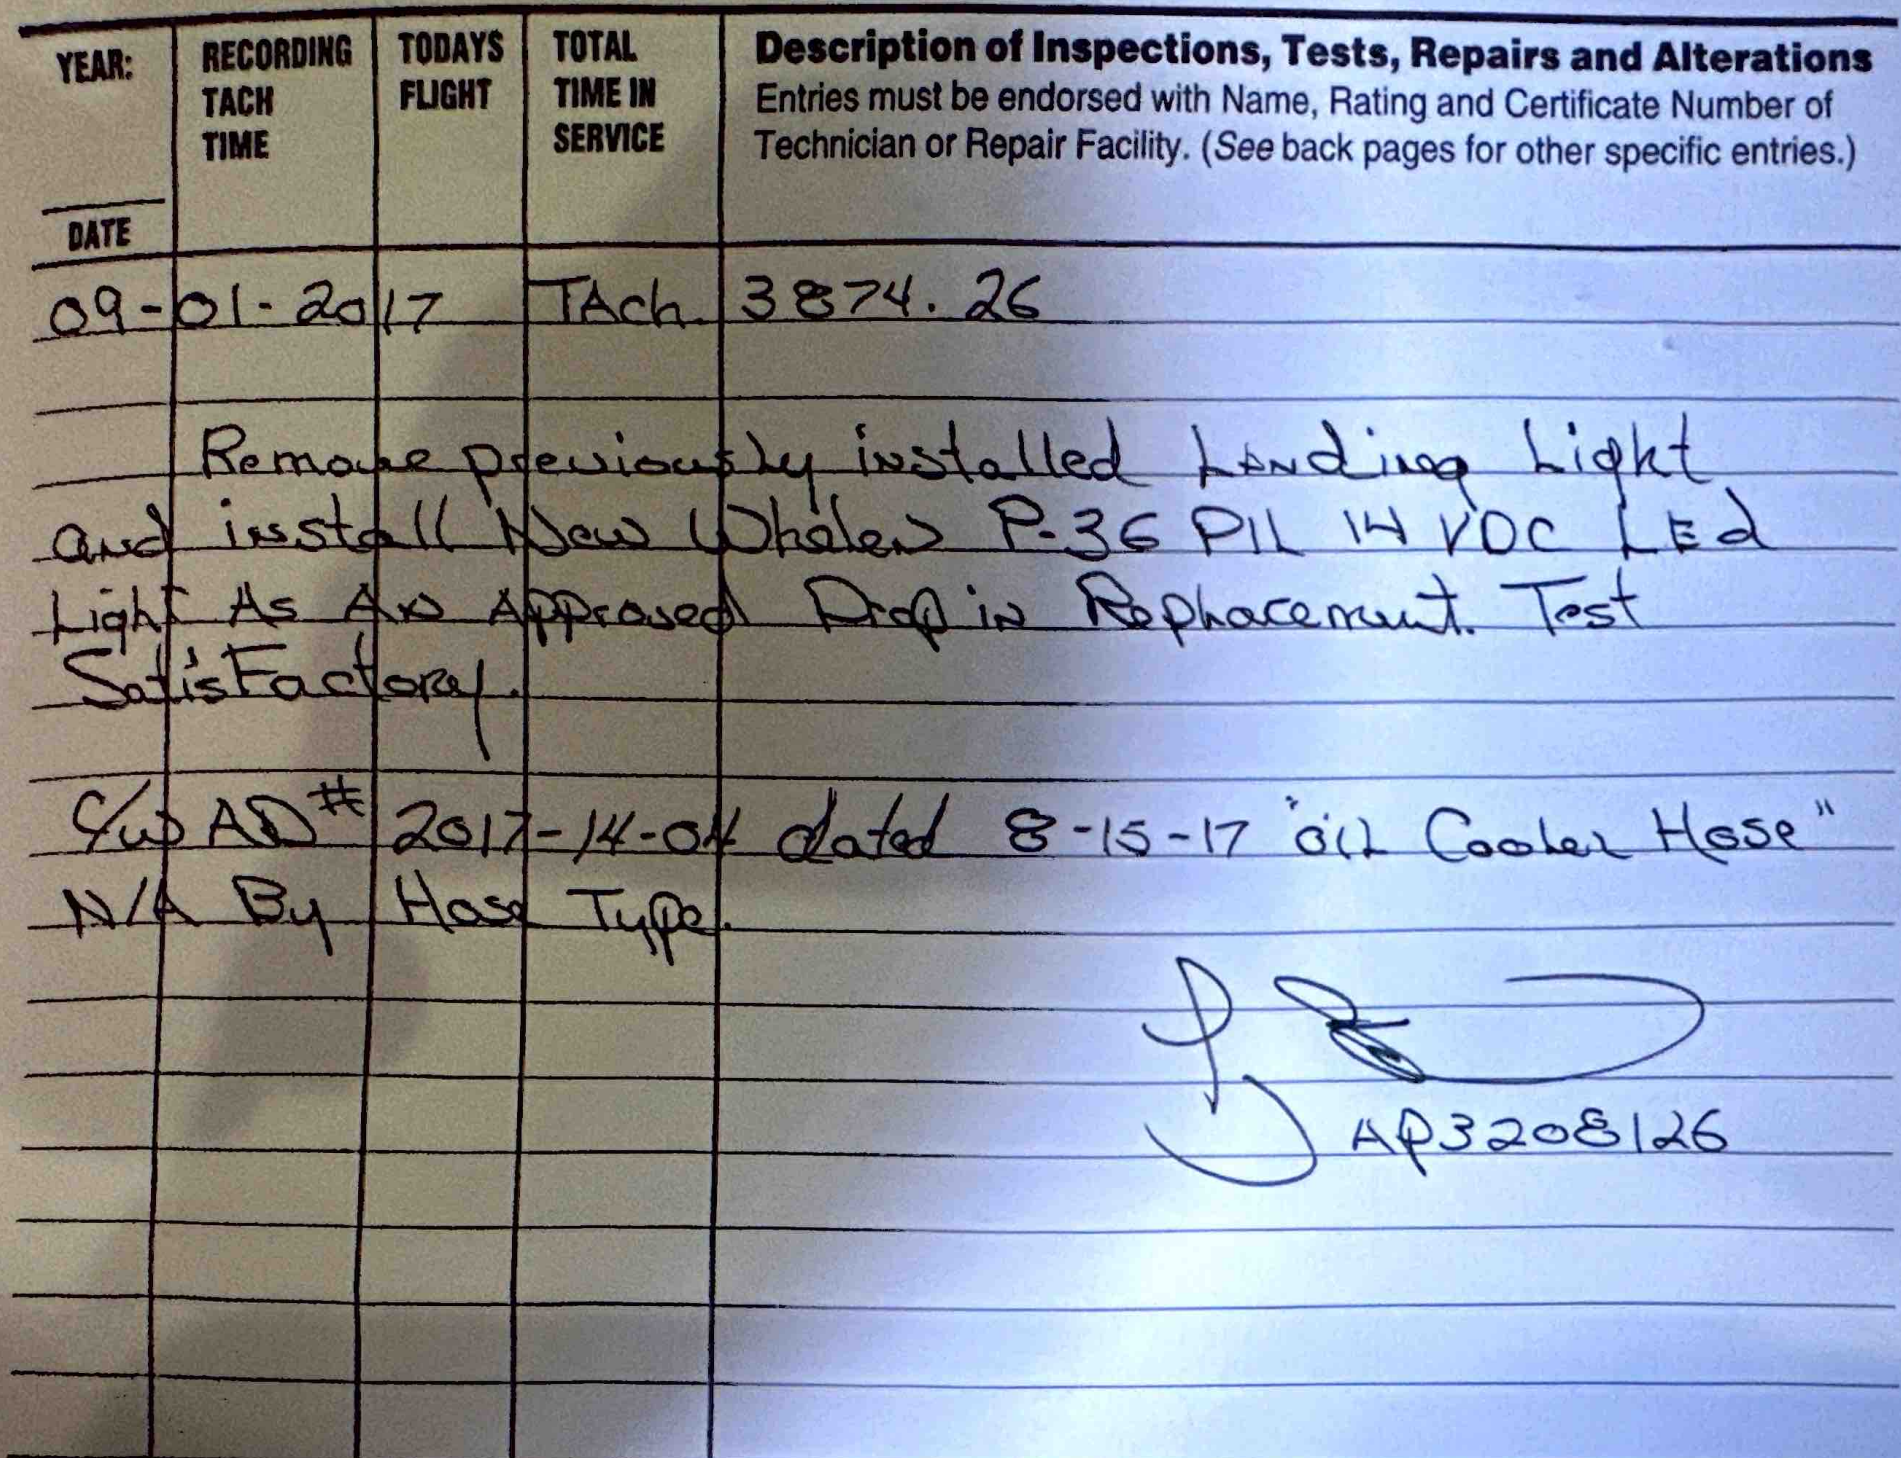 YEAR:
DATE
RECORDING
TACH
TIME
TODAYS
FLIGHT
TOTAL
TIME IN
SERVICE
Description of Inspections, Tests, Repairs and Alterations
Entries must be endorsed with Name, Rating and Certificate Number of
Technician or Repair Facility. (See back pages for other specific entries.)
09-01-2017 TAch. 3874.26
Remove previously installed Landing Light
and install New Whelen P-36 P1L 14 VDC LEd
Light As An Approved Drop in Replacement. Test
SatisFactory.
C/W AD# 2017-14-04 dated 8-15-17 "oil Cooler Hose"
N/A By Hose Type.
AP3208126